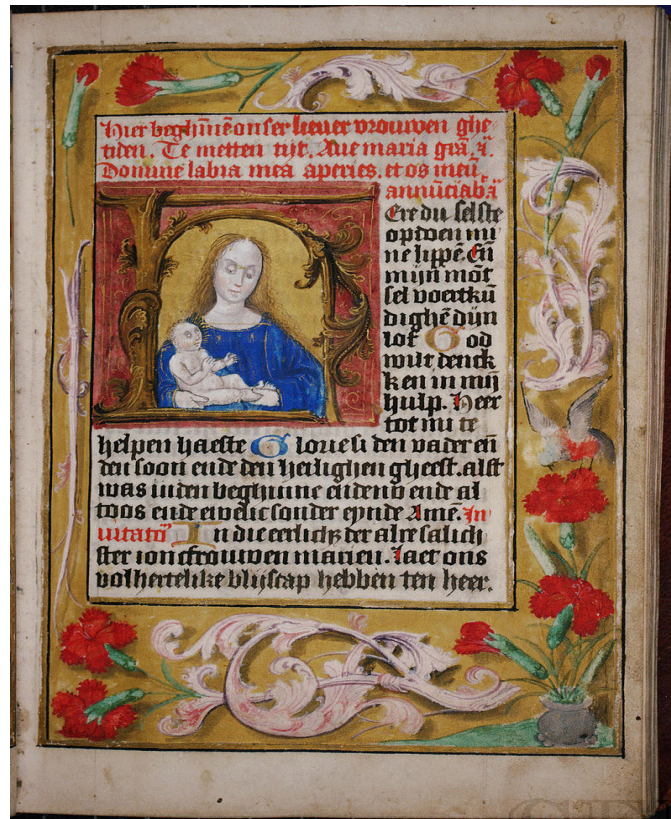 Hier beghīnē onser liever vrouwen ghe
tiden. Te metten tijt. Ave maria grā. ā.
Domine labia mea aperies. et os meū
annūciabā
Ere du selste
opdoen mi
ne lippē Eñ
mijn mōt
sel voertkū
dighē dijn
lof God
wilt denck
ken in mij
hulp. Heer
tot mi te
helpen haeste Glorie si den vader eñ
den soon ende den heilighen gheest. alst
was in den beghinne ende nv ende al
toos ende ewelic sonder eynde Amē. In
vitatō In die eerlichz der alre salich
ster ionckfrouwen marien. Laet ons
volhertelike blijscap hebben ten heer.